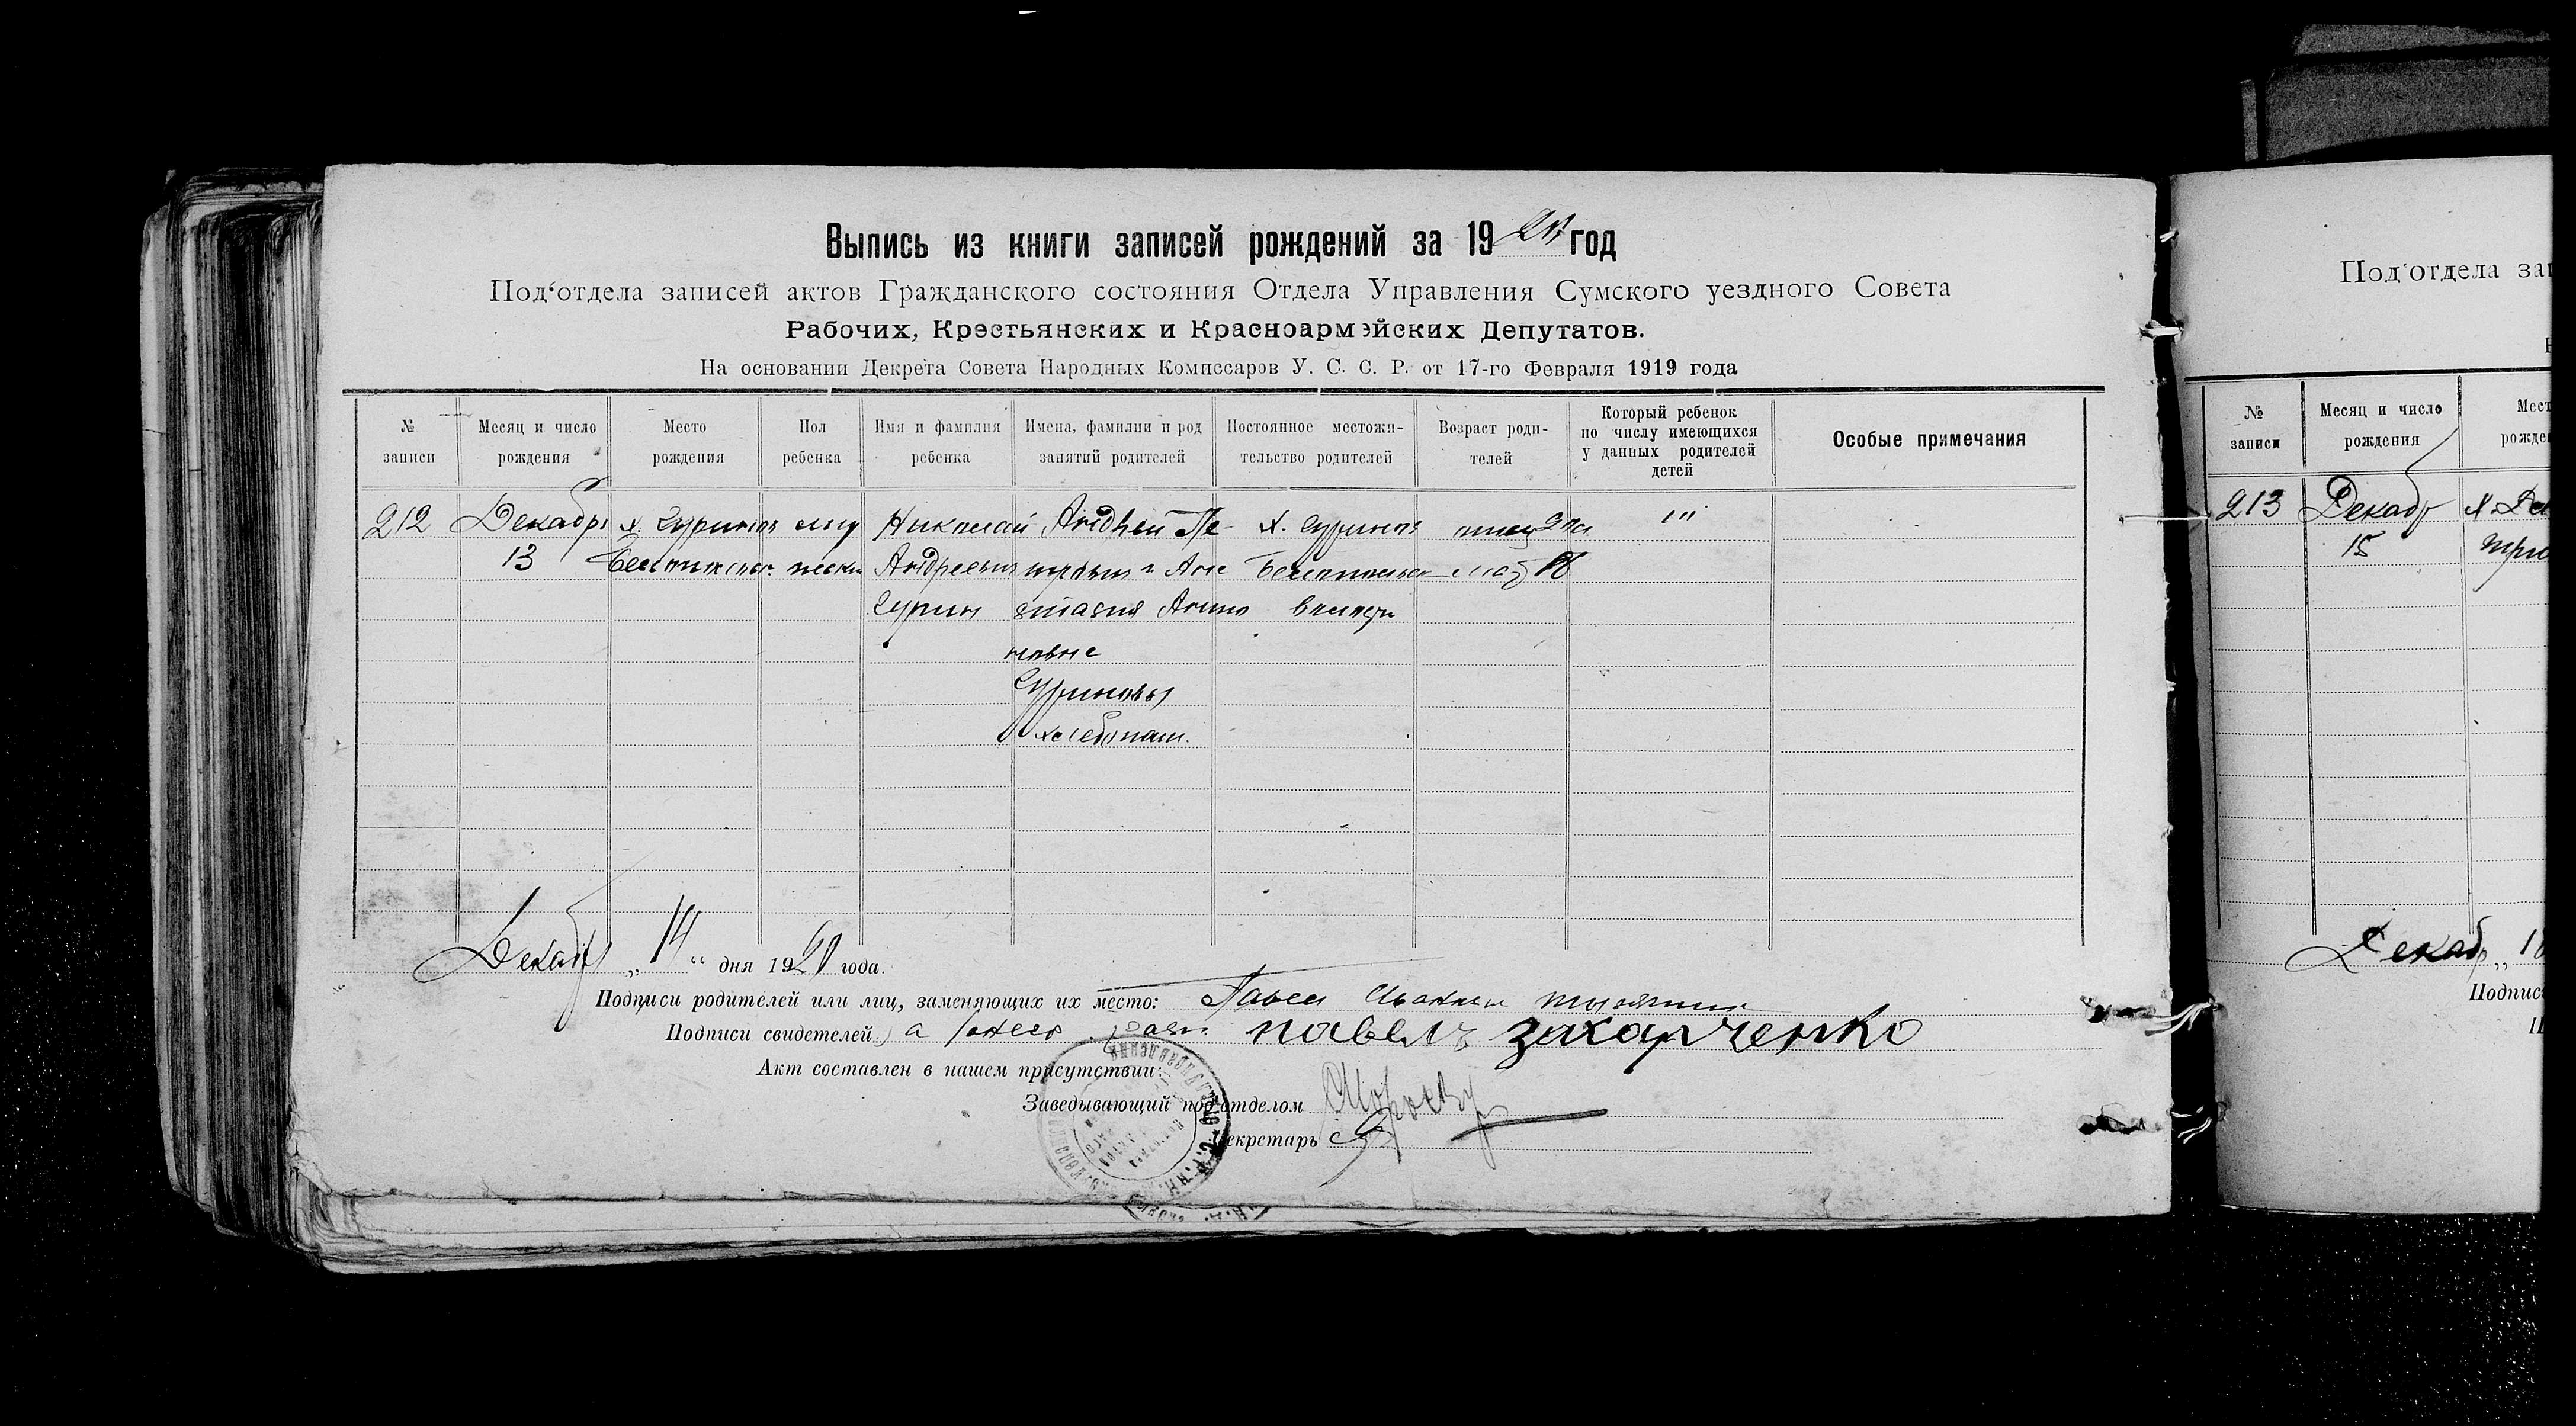 Выпись из книги записей рождений за 1920 год
Под‘отдела записей актов Гражданского состояния Отдела Управления Сумского уездного Совета
Рабочих, Крестьянских и Красноармэйских Депутатов.
На основании Декрета Совета Народных Комиссаров У. С. С. Р. от 17-го Февраля 1919 года
№ записи
Месяц и число рождения
Место рождения
Пол ребенка
Имя и фамилия ребенка
Имена, фамилии и род занятий родителей
Постоянное местожительство родителей
Возраст родителей
Который ребенок по числу имеющихся у данных родителей детей
Особые примечания
212
Декабрь
13
х. Гуринов
муж
ческий
Николай
Андреевич
Гурин
Андрей Пе-
трович и Ана
стасия Анто
новна
Гуриновы
хлебопаш.
х. Гуринов
Декабря „14“ дня 1920 года.
Подписи родителей или лиц, заменяющих их место: Павел
Подписи свидетелей: павелъ захарченко
Акт составлен в нашем присутствии:
Заведывающий под‘отделом
Секретарь
Под‘отдела
№ записи
Месяц и число рождения
213
Декабр
15
Декаб